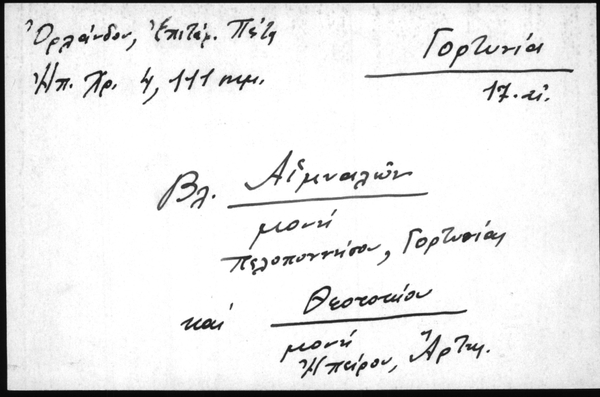 Ὀρλάνδου, Ἐπιτύμ. Πέτρ
Ἠπ. Χρ. 4, 111 πιμ.
Γορτυνία
17. αἰ.
Βλ. Αἰμυαλῶν
μονή
Πελοποννήσου, Γορτυνίας
καί Θεοτοκίου
μονή
Ἠπείρου, Ἄρτης.